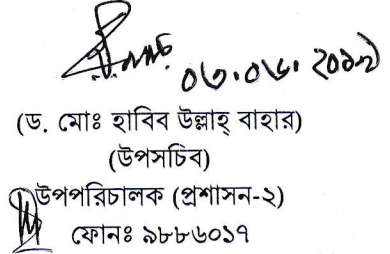 ০৩.০৬.২০১৯
(ড. মোঃ হাবিব উল্লাহ্ বাহার)
(উপসচিব)
উপপরিচালক (প্রশাসন-২)
ফোনঃ ৯৮৮৬০১৭